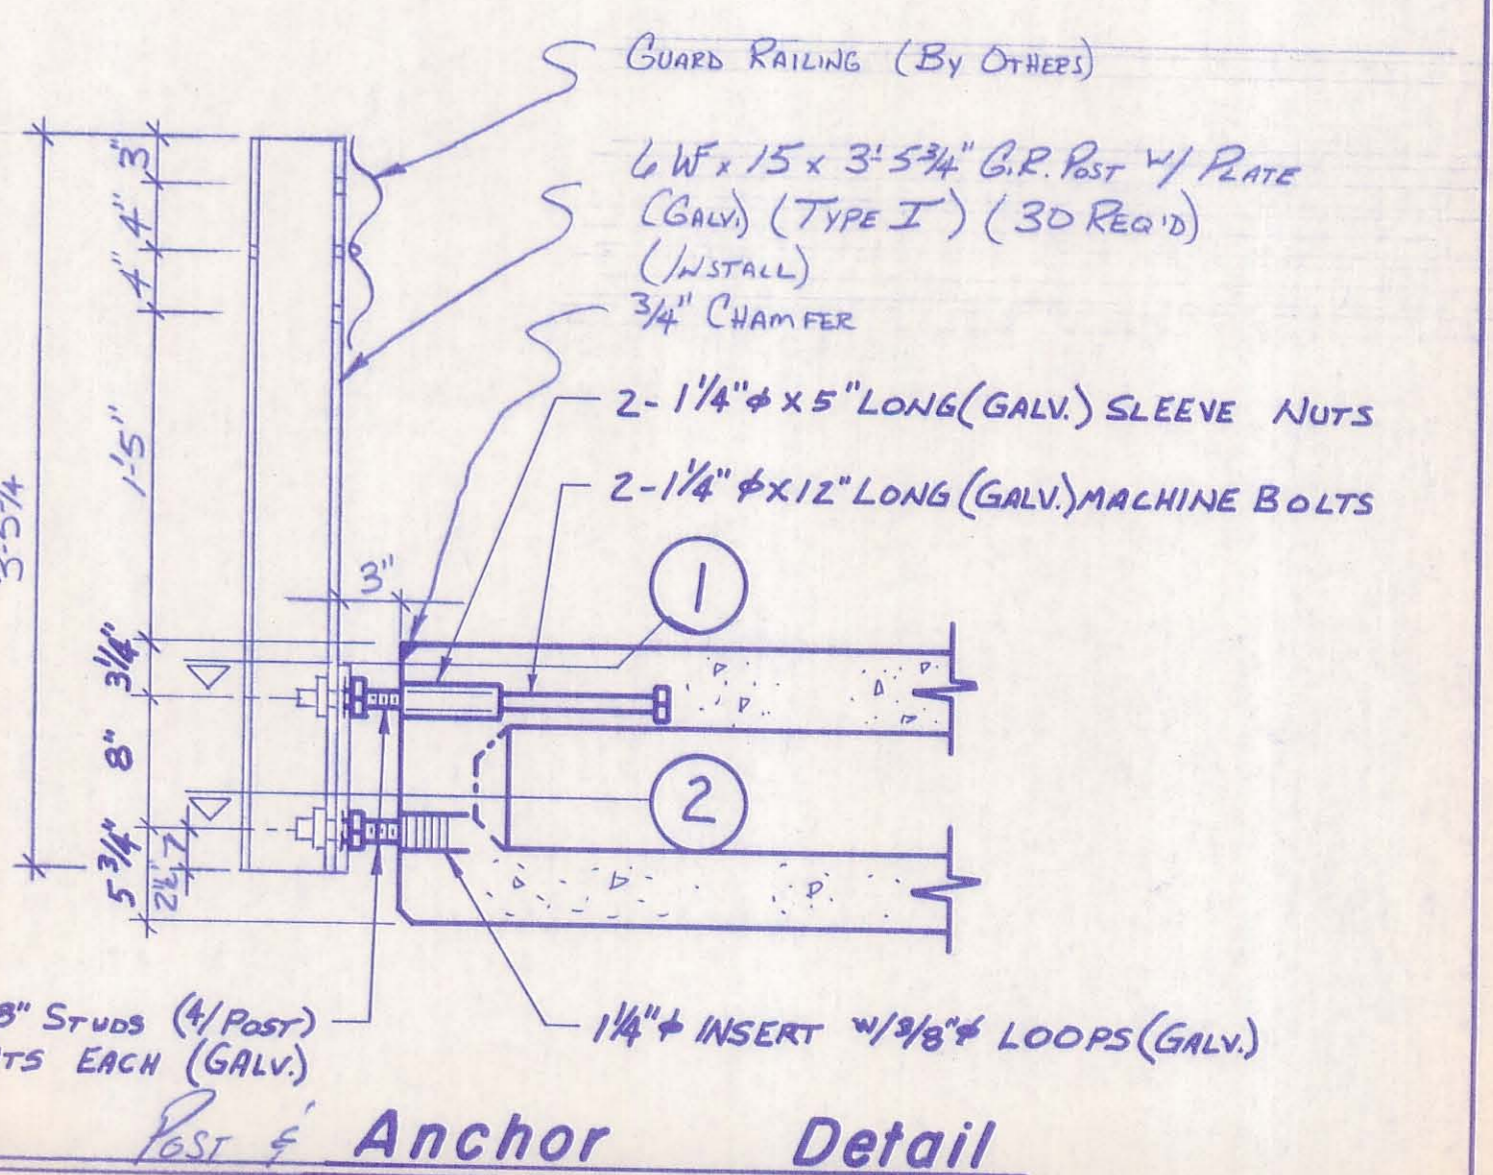 GUARD RAILING (BY OTHERS)
6 WF x 15 x 3'-5 3/4" G.R. POST W/ PLATE
(GALV.) (TYPE I) (30 REQ'D)
(INSTALL)
3/4" CHAMFER
2- 1 1/4"ϕ X 5" LONG (GALV.) SLEEVE NUTS
2- 1 1/4" ϕ X 12" LONG (GALV.) MACHINE BOLTS
3"
4"
4"
1'-5"
3-5 3/4
3"
1
3 1/4"
8"
2
5 3/4"
2 1/2"
3" STUDS (4/POST)
TS EACH (GALV.)
1 1/4"ϕ INSERT W/3/8"ϕ LOOPS (GALV.)
POST & Anchor Detail